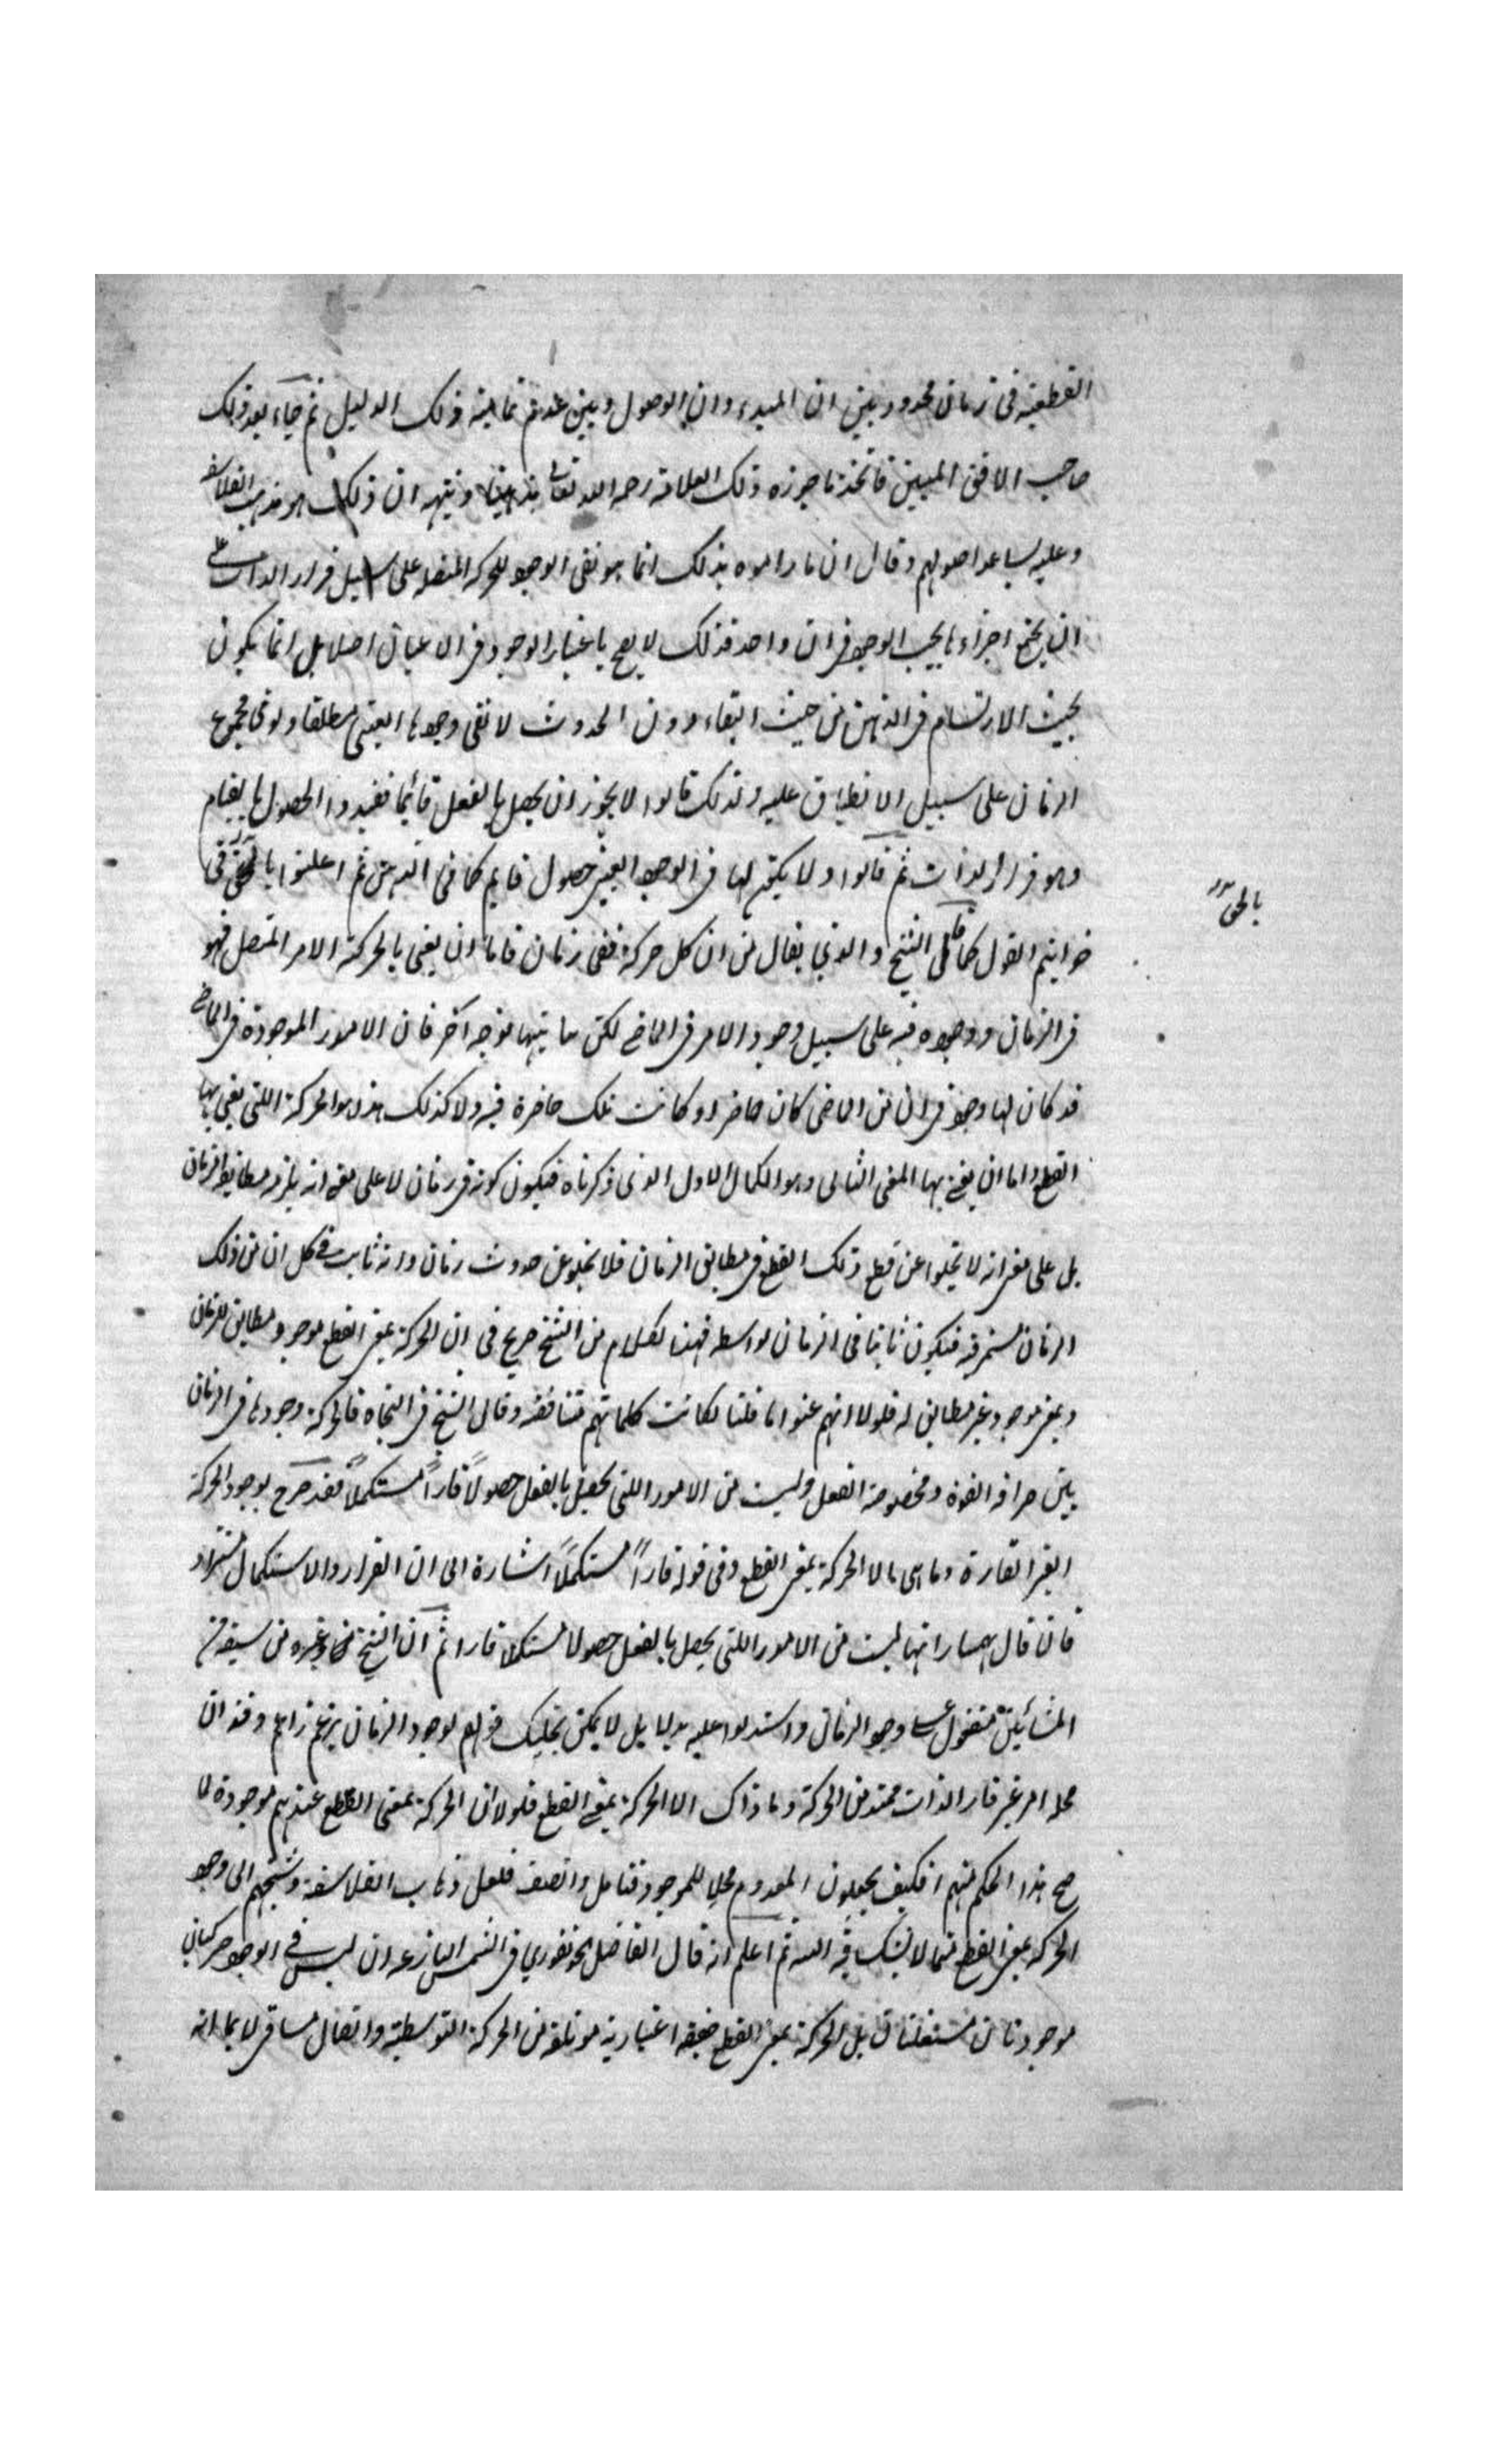 القطعيه فى زمان محدود بين ان المبدء وان الوصول وبين عدم تماميه ذلك الدليل ثم جاء بعد ذلك
صاحب الافق المبين فاتخذ ما جوزه ذلك العلامة رحمه الله تعالى مذهبا وتبهه ان ذلك هو مذهب الفلاسفه
وعليه يساعد اصولهم وقال ان ما راموه بذلك انما هو نفى الوجود للحركه المتصله على سبيل قرار الذات على
ان يجتمع اجزاءها بحسب الوجود فى ان واحد فذلك لا يصح باعتبار الوجود فى الاعيان اصلا بل انما يكون
بحيث الارتسام فى الذهن من حيث البقاء دون الحدوث لا نفى وجودها العينى مطلقا ولو فى مجموع
الزمان على سبيل الانطباق عليه ولذلك قالوا لا يجوز ان يحصل بالفعل قائما فقيدوا الحصول بالقيام
وهو قرار الذات ثم قالوا ولا يكون لها فى الوجود العينى حصول قايم كما فى الذهن ثم اعلنوا بالحق فى
خواتيم القول كما قال الشيخ والذي يقال من ان كل حركة ففى زمان فاما ان يعنى بالحركة الامر المتصل فهو
بالحق
فى الزمان ووجوده فيه على سبيل وجود الامر فى الماضى لكن يباينها بوجه آخر فان الامور الموجودة فى الماضى
قد كان لها وجود فى ان من الماضى كان حاضرا وكانت تلك حاضرة فيه ولا كذلك هذه والحركة اللتى يعنى بها
القطع واما ان يعنى بها المعنى الثانى وهو الكمال الاول الذى ذكرناه فيكون كونه فى زمان لا على معنى انه يلزمه مطابقة الزمان
بل على معنى انه لا تخلوا عن قطع ذلك القطع فى مطابق الزمان فلا تخلو عن حدوث زمان وانه ثابت فى كل ان من ذلك
الزمان مستمر فيه فيكون ثابتا فى الزمان بواسطه فهذا الكلام من الشيخ صريح فى ان الحركة بمعنى القطع موجود ومطابق للزمان
وبمعنى موجود غير مطابق له فلولا انهم عنوا ما قلنا لكانت كلماتهم متناقضه وقال الشيخ فى النجاه فالحركة وجودها فى الزمان
بين صرافه القوة ومحضوضة الفعل وليست من الامور اللتى تحصل بالفعل حصولاً قاراً مستكملاً فقد صرح بوجود الحركة
الغير القارة وما هى الا الحركة بمعنى القطع وفى قوله قاراً مستكملاً اشارة الى ان القرار والاستكمال
فان قال بهمنيار انها ليست من الامور اللتى يحصل بالفعل حصولا مستكملا قارا ثم ان الشيخ وغيره من
المشائين متفقون على وجود الزمان واستدلوا عليه بدلايل لا يمكن قولهم بوجود الزمان وقد ان
محله امر غير قار الذات ممتد من الحركة وما ذاك الا الحركة بمعنى القطع فلولا ان الحركة بمعنى القطع عندهم موجودة لما
صح هذا الحكم منهم افكيف يجعلون المعدوم محلا للموجود فتامل وانصف فلعل ذهاب الفلاسفة وشيخهم الى وجود
الحركة بمعنى القطع مما لا يشك فيه ثم اعلم انه قال الفاضل الجونفوري فى الشمس البازغه ان ليس فى الوجود حركتان
موجودتان مستقلتان بل الحركة بمعنى القطع اعتبارية مؤتلفة من الحركة التوسطية واتصال مسافى لا بما انه